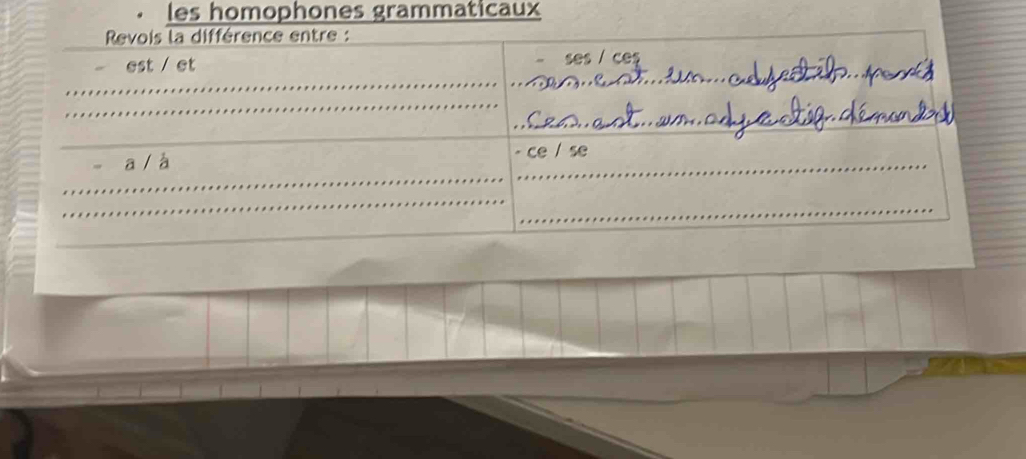 • les homophones grammaticaux
Revois la différence entre :
- est / et
- ses / ces
ses est un adjectif
Ces est un adjectif
- a / à
- ce / se